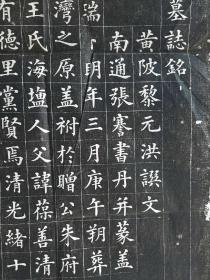 墓誌銘
黄陂黎元洪譔文
南通張謇書丹并篆盖
明年三月庚午朔葬
灣之原盖祔於贈公朱府
王氏海塩人父諱葆善清
有德里黨賢焉清光緒十